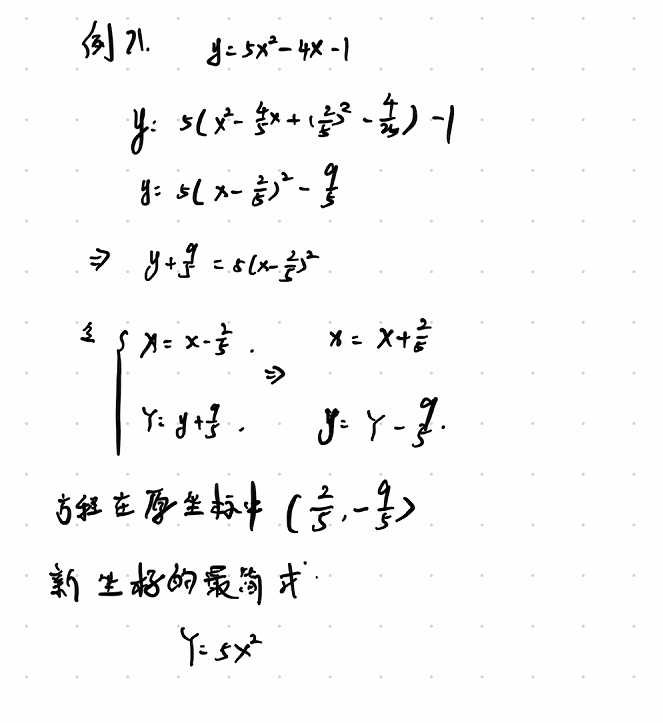 例 21. y=5x²-4x-1
y= 5(x²-4/5x+(2/5)²-4/25)-1
y= 5(x-2/5)²-9/5
⇒ y+9/5=5(x-2/5)²
令 { X=x-2/5. ⇒ x=X+2/5
Y=y+9/5. y=Y-9/5.
方程在原坐标中(2/5,-9/5)
新坐标的最简式.
Y=5X²